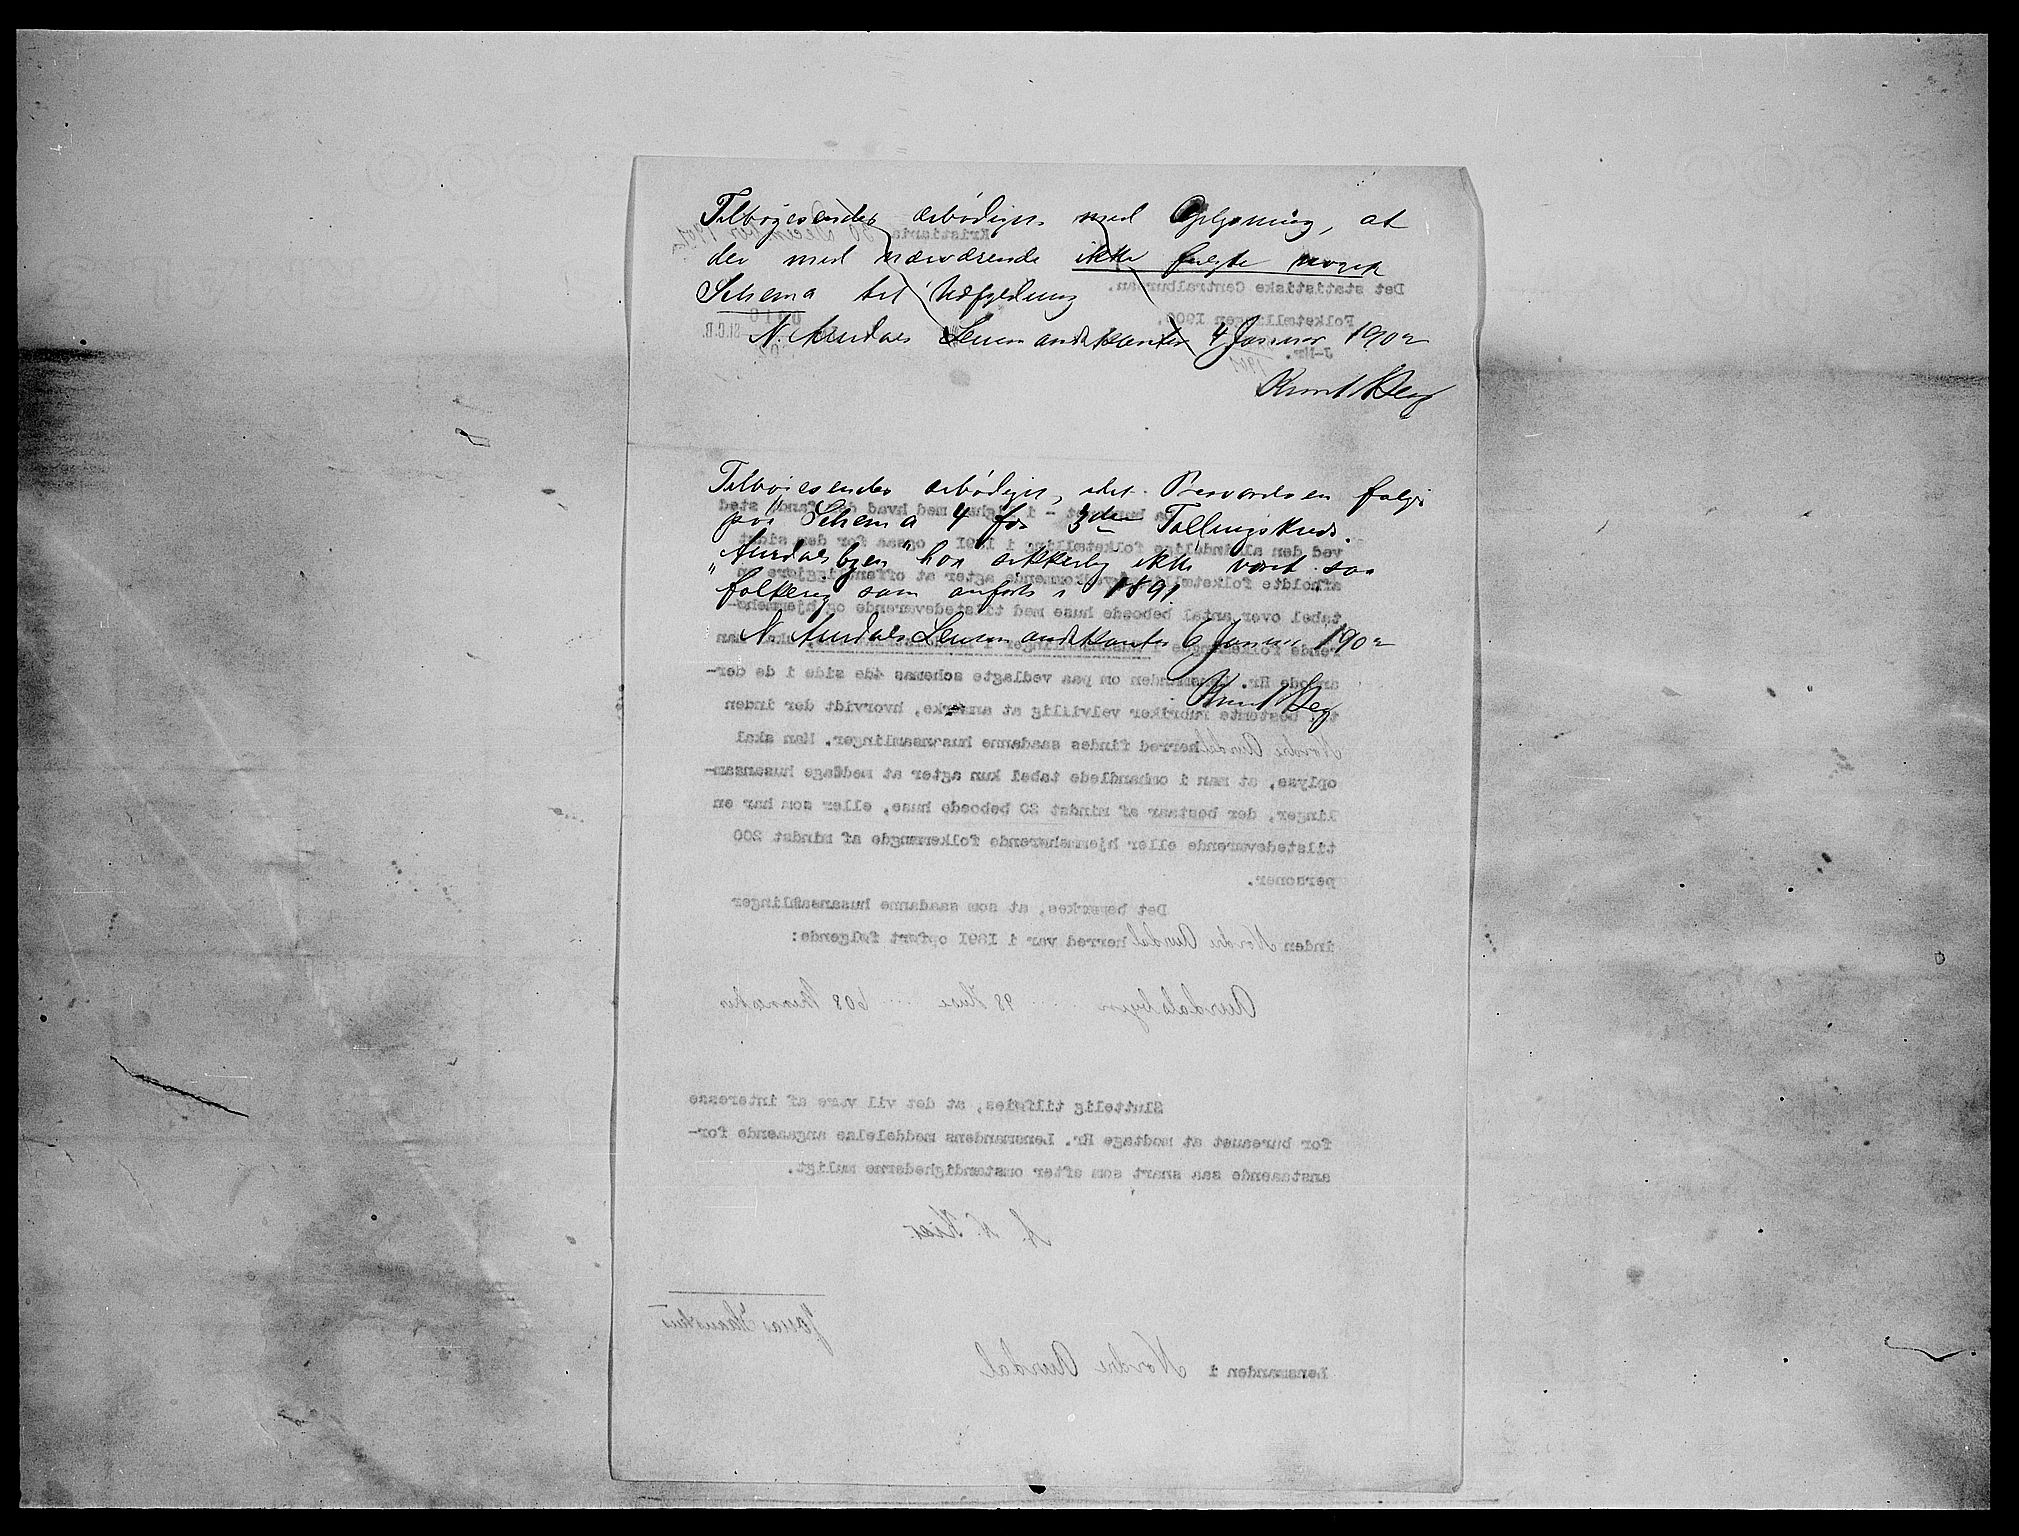 Tilbagesendes ærbødigst med Oplysning, at
der med nærværende ikke fulgte noget
Schema til Udfyldning
N. Aurdals Lensmandskontor 4 Januar 1902
Knut Berg
Tilbagesendes ærbødigst, idet Besvarelsen følger
på Schema 4 for 3die Tællingskreds.
"Aurdalsbyen" har sikkerlig ikke været saa
folkerig som anført i 1891.
N. Aurdals Lensmandskontor 6 Januar 1902
Knut Berg
Kristiania 30 December 1901
Det statistiske Centralbureau.
Folketællingen 1900.
J-Nr.
ved den almindelige folketælling i 1891 ogsaa for den sidst
afholdte folketælling vedkommende agter at offentliggjøre en
tabel over antal beboede huse med tilstedeværende og hjemmehø-
anmode Hr. Lensmanden om paa vedlagte schemas 4de side i de der-
til bestemte rubriker velvillig at anmærke, hvorvidt der inden
Nordre Aurdal herred findes saadanne husansamlinger. Man skal
oplyse, at man i omhandlede tabel kun agter at medtage husansam-
linger, der bestaar af mindst 20 beboede huse, eller som har en
tilstedeværende eller hjemmehørende folkemængde af mindst 200
personer.
Det bemærkes, at som saadanne husansamlinger
inden Nordre Aurdal herred var i 1891 opført følgende:
Aurdalsbyen 98 Huse 608 Mennesker
Sluttelig tilføies, at det vil være af interesse
for bureauet at modtage Hr. Lensmandens meddelelse angaaende for-
anstaaende saa snart som efter omstændighederne muligt.
A. N. Kiær.
Lensmanden i Nordre Aurdal